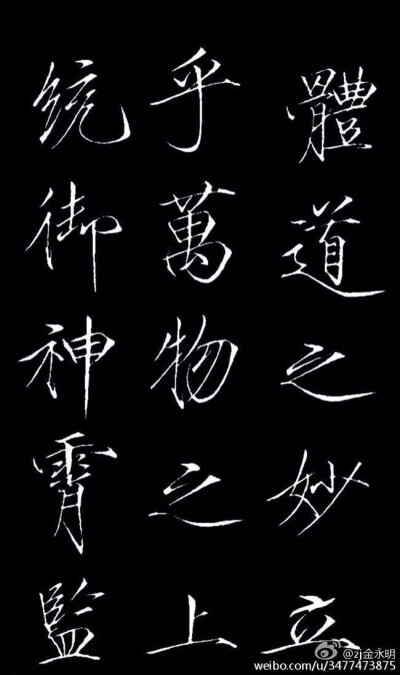 體道之妙立
乎萬物之上
統御神霄監
@2j金永明
weibo.com/u/3477473875